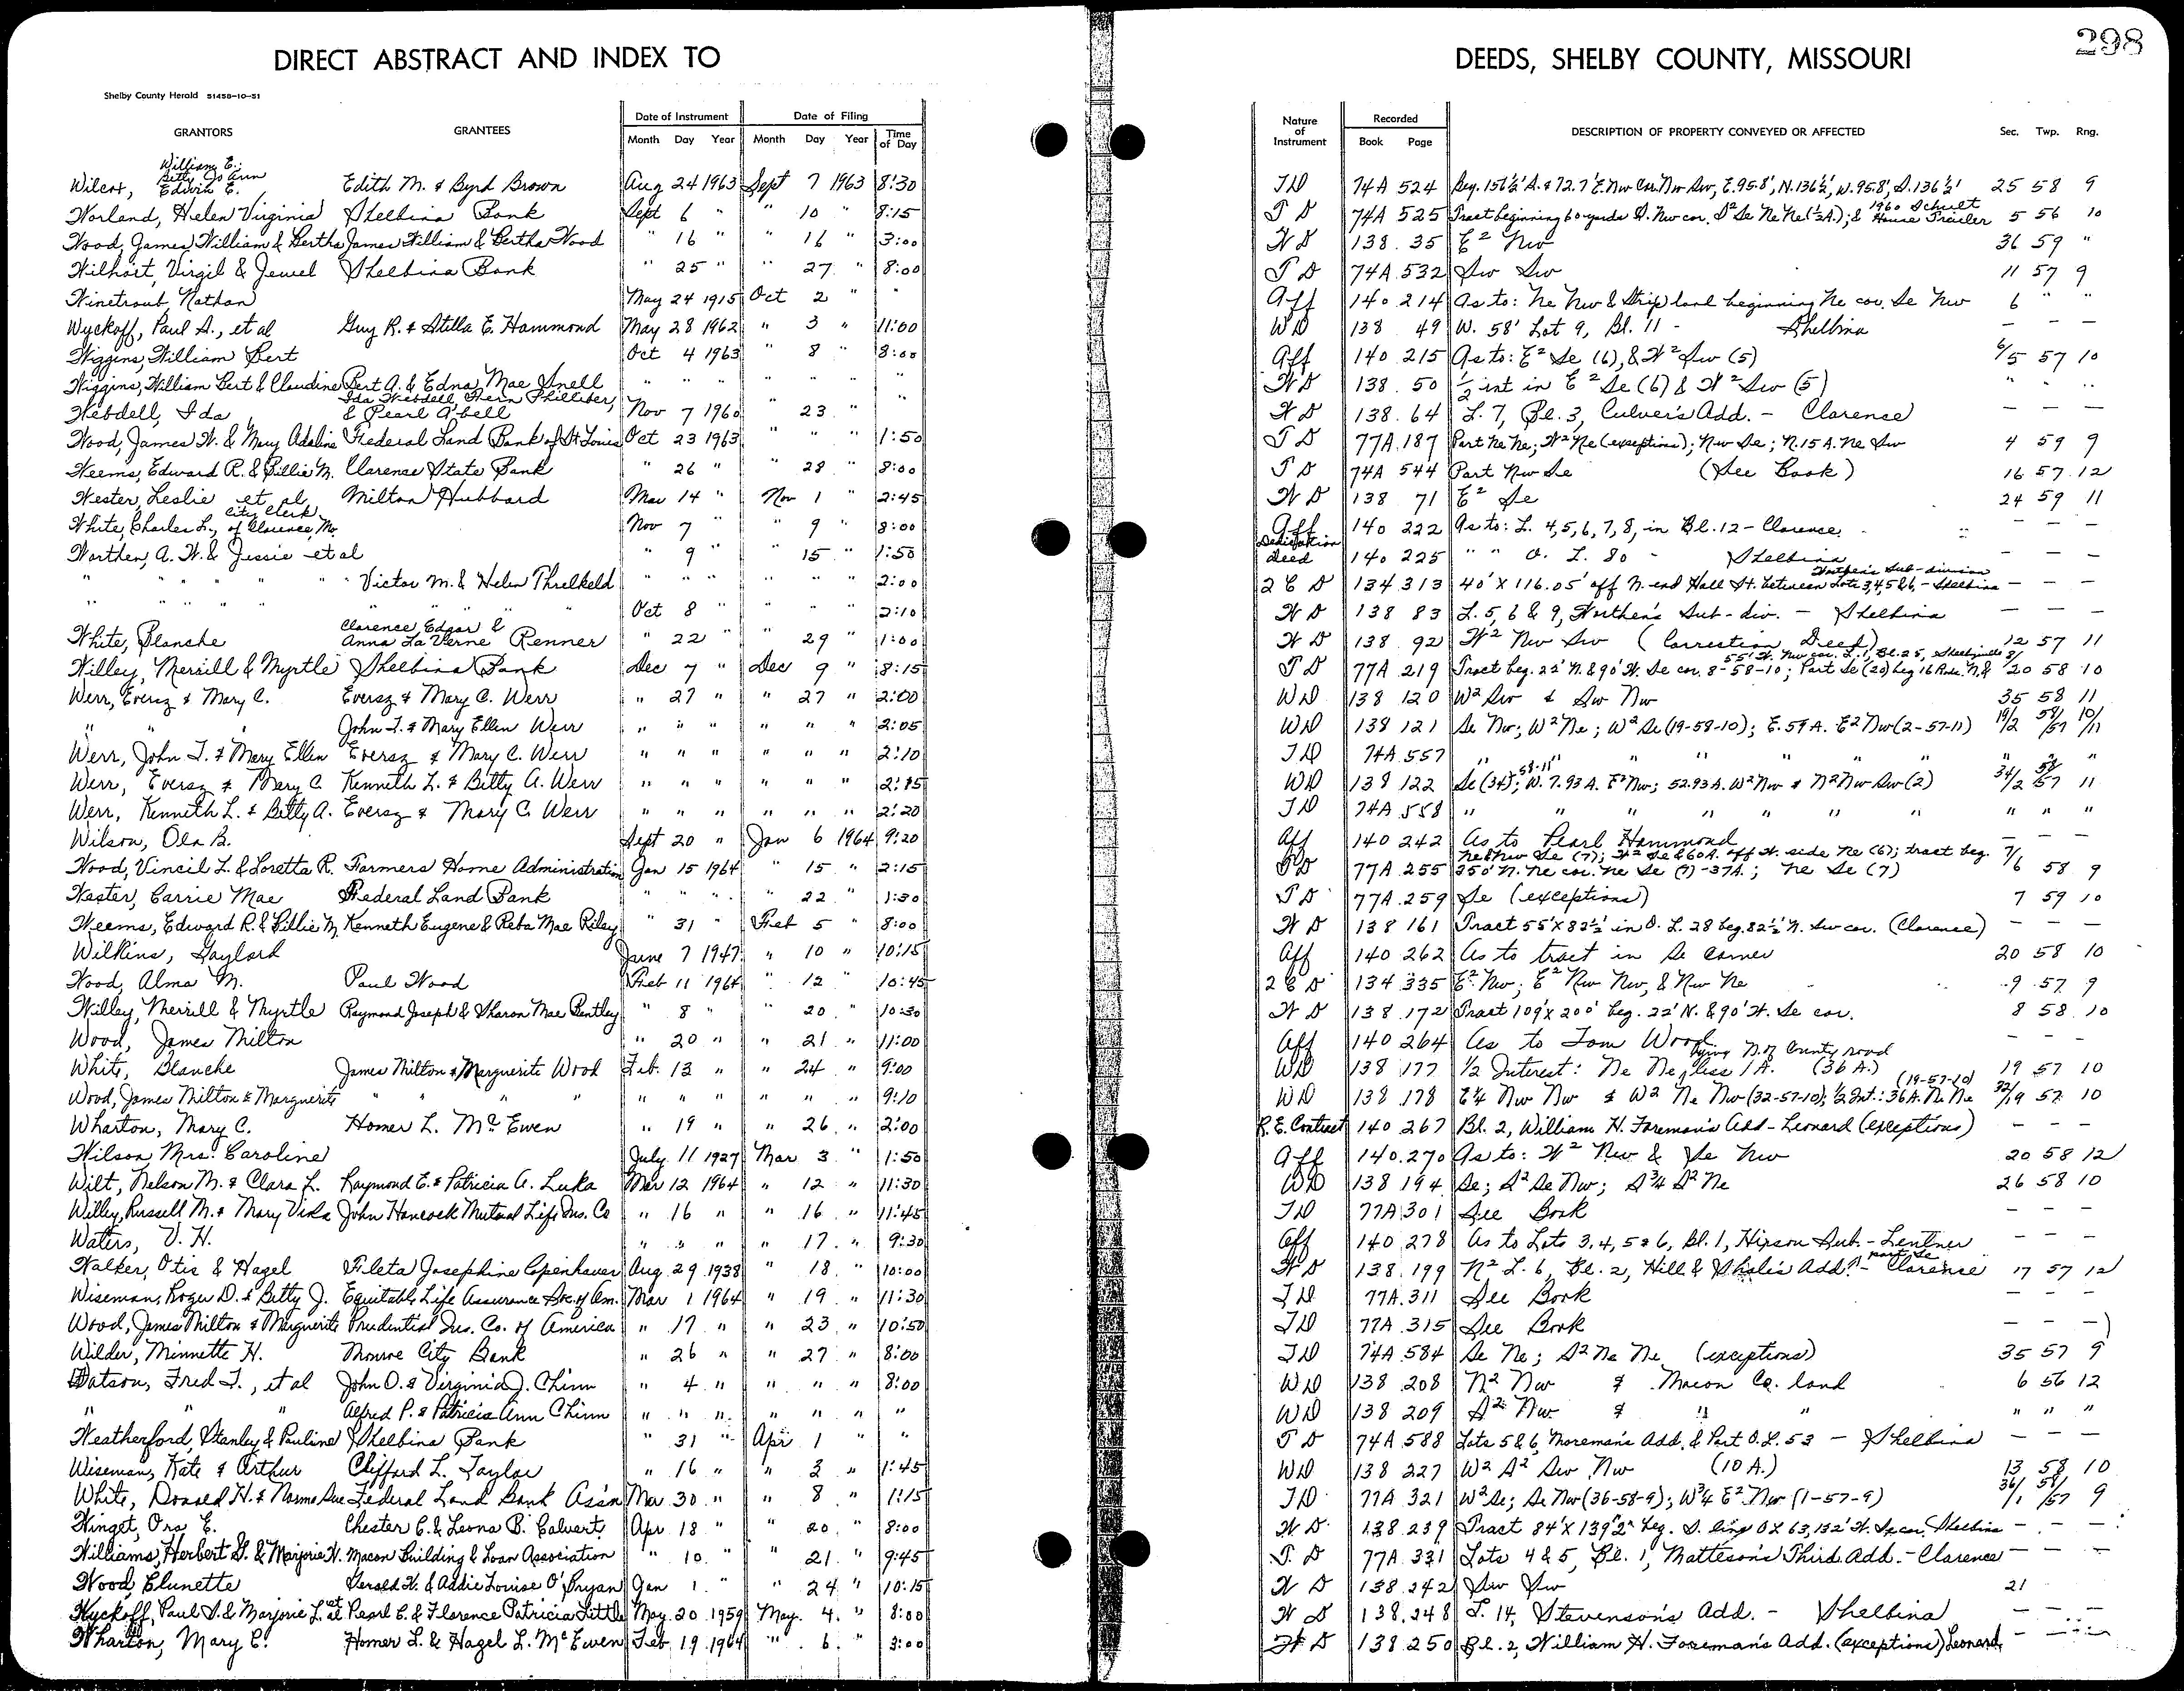 298
DIRECT ABSTRACT AND INDEX TO DEEDS, SHELBY COUNTY, MISSOURI
Shelby County Herald 51458-10-51
GRANTORS GRANTEES Date of Instrument Month Day Year Date of Filing Month Day Year Time of Day Nature of Instrument Recorded Book Page DESCRIPTION OF PROPERTY CONVEYED OR AFFECTED Sec. Twp. Rng.
Wilcox, William E. Betty Jo Ann Edwin E. Edith M. & Byrd Brown Aug 24 1963 Sept 7 1963 8:30 TD 74A 524 Beg. 156½' S. & 72.7' E. Nw Cor. Nw Sw, E. 95.8', N. 136½', W. 95.8', S. 136½' 25 58 9
Worland, Helen Virginia Shelbina Bank Sept 6 " " 10 " 8:15 T D 74A 525 Tract beginning 60 yards S. Nw cor. S² Se Ne Ne (½A.); & 1960 Schult House Trailer 5 56 10
Wood, James William & Bertha James William & Bertha Wood " 16 " " 16 " 3:00 W D 138 35 E² Nw 36 59 "
Wilhoit, Virgil & Jewel Shelbina Bank " 25 " " 27 " 8:00 T D 74A 532 Sw Sw 11 57 9
Winetroub, Nathan May 24 1915 Oct 2 " " Aff 140 214 As to: Ne Nw & Strip land beginning Ne cor. Se Nw 6 " "
Wyckoff, Paul S., et al Guy R. & Stilla E. Hammond May 28 1962 " 3 " 11:00 WD 138 49 W. 58' Lot 9, Bl. 11 - Shelbina — — —
Wiggins, William Bert Oct 4 1963 " 8 " 8:00 Aff 140 215 As to: E² Se (6), & W² Sw (5) 6/5 57 10
Wiggins, William Bert & Claudine Bert A. & Edna Mae Snell " " " " " " " W D 138 50 ½ int in E² Se (6) & W² Sw (5) " " "
Webdell, Ida Ida Webdell, Fern Philliber, & Pearl A'bell Nov 7 1960 " 23 " " W D 138 64 L. 7, Bl. 3, Culver's Add. - Clarence — — —
Wood, James W. & Mary Adaline Federal Land Bank of St Louis Oct 23 1963 " " " 1:50 T D 77A 187 Part Ne Ne; W² Ne (exceptions); Nw Se; N. 15 A. Ne Sw 4 59 9
Weems, Edward R. & Billie M. Clarence State Bank " 26 " " 28 " 8:00 T D 74A 544 Part Nw Se (See Book) 16 57 12
Wester, Leslie et al Milton Hubbard Mar 14 " Nov 1 " 2:45 W D 138 71 E² Se 24 59 11
White, Charles L., City Clerk of Clarence, Mo. Nov 7 " " 9 " 8:00 Aff 140 222 As to: L. 4, 5, 6, 7, 8, in Bl. 12 - Clarence — — —
Worthen, A. W. & Jessie et al " 9 " " 15 " 1:50 Dedication Deed 140 225 " " O. L. 80 - Shelbina — — —
" " " " " Victor M. & Helen Threlkeld " " " " " " 2:00 2 C D 134 313 40' X 116.05' off N. end Hall St. between Lots 3, 4, 5 & 6, Worthen's Sub-division - Shelbina — — —
" " " " " " Oct 8 " " " " 2:10 W D 138 83 L. 5, 6 & 9, Worthen's Sub-div. - Shelbina — — —
White, Blanche Clarence Edgar & Anna La Verne Renner " 22 " " 29 " 1:00 W D 138 92 W² Nw Sw (Correction Deed) 12 57 11
Willey, Merrill & Myrtle Shelbina Bank Dec 7 " Dec 9 " 8:15 T D 77A 219 Tract beg. 22' N. & 90' W. Se cor. 8-58-10; Part Se (20) beg 16 Rods N. & 55' W. Nw cor. L. 1, Bl. 25, Shelbyville 8/20 58 10
Werr, Eversz & Mary C. Eversz & Mary C. Werr " 27 " " 27 " 2:00 WD 138 120 W² Sw & Sw Nw 35 58 11
" " John T. & Mary Ellen Werr " " " " " " 2:05 WD 138 121 Se Nw; W² Ne; W² Se (19-58-10); E. 59 A. E² Nw (2-57-11) 19/2 58/57 10/11
Werr, John T. & Mary Ellen Eversz & Mary C. Werr " " " " " " 2:10 TD 74A 557 " " " " " "
Werr, Eversz & Mary C Kenneth L. & Betty A. Werr " " " " " " 2:15 WD 138 122 Se (34); 58-11 W. 7.93 A. E² Nw; 52.93 A. W² Nw & N² Nw Sw (2) 34/2 58/57 11
Werr, Kenneth L. & Betty A. Eversz & Mary C. Werr " " " " " " 2:20 TD 74A 558 " " " " " " " "
Wilson, Ola B. Sept 20 " Jan 6 1964 9:20 Aff 140 242 As to Pearl Hammond — — —
Wood, Vincil L. & Loretta R. Farmers Home Administration Jan 15 1964 " 15 " 2:15 T D 77A 255 Ne & Nw Se (7); W² Se & 60 A. off W. side Ne (6); tract beg. 250' N. Ne cor. Ne Se (7) - 37A.; Ne Se (7) 7/6 58 9
Wester, Carrie Mae Federal Land Bank " " " " 22 " 1:30 T D 77A 259 Se (exceptions) 7 59 10
Weems, Edward R. & Billie M. Kenneth Eugene & Reba Mae Riley " 31 " Feb 5 " 8:00 W D 138 161 Tract 55' X 82½' in O. L. 28 beg. 82½' N. Sw cor. (Clarence) — — —
Wilkins, Gaylord June 7 1947 " 10 " 10:15 Aff 140 262 As to tract in Se corner 20 58 10
Wood, Alma M. Paul Wood Feb 11 1964 " 12 " 10:45 2 C D 134 335 E² Nw; E² Nw Nw, & Nw Ne 9 57 9
Willey, Merrill & Myrtle Raymond Joseph & Sharon Mae Bentley " 8 " " 20 " 10:30 W D 138 172 Tract 109' X 200' beg. 22' N. & 90' W. Se cor. 8 58 10
Wood, James Milton " 20 " " 21 " 11:00 Aff 140 264 As to Tom Wood — — —
White, Blanche James Milton & Marguerite Wood Feb. 13 " " 24 " 9:00 WD 138 177 ½ Interest: Ne Ne, less 1 A. lying N. of County road (36 A.) 19 57 10
Wood, James Milton & Marguerite " " " " " " " " " 9:10 WD 138 178 E¼ Nw Nw & W² Ne Nw (32-57-10); ½ Int.: 36 A. Ne Ne (19-57-10) 32/19 57 10
Wharton, Mary C. Homer L. McEwen " 19 " " 26 " 2:00 R.E. Contract 140 267 Bl. 2, William H. Foreman's Add - Leonard (exceptions) — — —
Wilson Mrs. Caroline July 11 1927 Mar 3 " 1:50 Aff 140 270 As to: W² Nw & Se Nw 20 58 12
Wilt, Nelson M. & Clara L. Raymond E. & Patricia A. Luka Mar 12 1964 " 12 " 11:30 WD 138 194 Se; S² Se Nw; S¾ S² Ne 26 58 10
Willey, Russell M. & Mary Viola John Hancock Mutual Life Ins. Co " 16 " " 16 " 11:45 TD 77A 301 See Book — — —
Waters, V. H. " " " " 17 " 9:30 Aff 140 278 As to Lots 3, 4, 5 & 6, Bl. 1, Hixson Sub. - Lentner — — —
Walker, Otis & Hazel Fileta Josephine Copenhaver Aug. 29 1938 " 18 " 10:00 W D 138 199 N² L. 6, Bl. 2, Hill & Shale's Add. - part Se Clarence 17 57 12
Wiseman, Roger D. & Betty J. Equitable Life Assurance Soc. of Am. Mar 1 1964 " 19 " 11:30 TD 77A 311 See Book — — —
Wood, James Milton & Marguerite Prudential Ins. Co. of America " 17 " " 23 " 10:50 TD 77A 315 See Book — — —
Wilder, Minnette H. Monroe City Bank " 26 " " 27 " 8:00 TD 74A 584 Se Ne; S² Ne Ne (exceptions) 35 57 9
Watson, Fred T., et al John O. & Virginia J. Chinn " 4 " " " " 8:00 WD 138 208 N² Nw & Macon Co. land 6 56 12
" " " Alfred P. & Patricia Ann Chinn " " " " " " " WD 138 209 S² Nw & " " " " "
Weatherford, Stanley & Pauline Shelbina Bank " 31 " Apr 1 " " T D 74A 588 Lots 5 & 6, Moreman's Add. & Part O. L. 53 - Shelbina — — —
Wiseman, Kate & Arthur Clifford L. Taylor " 16 " " 3 " 1:45 WD 138 227 W² S² Sw Nw (10 A.) 13 58 10
White, Donald H. & Norma Sue Federal Land Bank Ass'n Mar 30 " " 8 " 1:15 TD 77A 321 W² Se; Se Nw (36-58-9); W¾ E² Nw (1-57-9) 36/1 58/57 9
Winget, Ora E. Chester C. & Leona B. Calvert Apr 18 " " 20 " 8:00 W D 138 239 Tract 84' X 139'2" beg. S. line O X 63, 132' W. Se cor. Shelbina — — —
Williams, Herbert G. & Marjorie W. Macon Building & Loan Association " 10 " " 21 " 9:45 T. D 77A 331 Lots 4 & 5, Bl. 1, Matteson's Third Add. - Clarence — — —
Wood, Clunette Gerald W. & Addie Louise O'Bryan Jan 1 " " 24 " 10:15 W D 138 242 Sw Sw 21
Wyckoff, Paul S. & Marjorie L. et al Pearl C. & Florence Patricia Little May 20 1959 May 4 " 8:00 W D 138 248 L. 14, Stevenson's Add. - Shelbina — — —
Wharton, Mary C. Homer L. & Hazel L. McEwen Feb 19 1964 " 6 " 3:00 W D 138 250 Bl. 2, William H. Foreman's Add. (exceptions) Leonard — — —